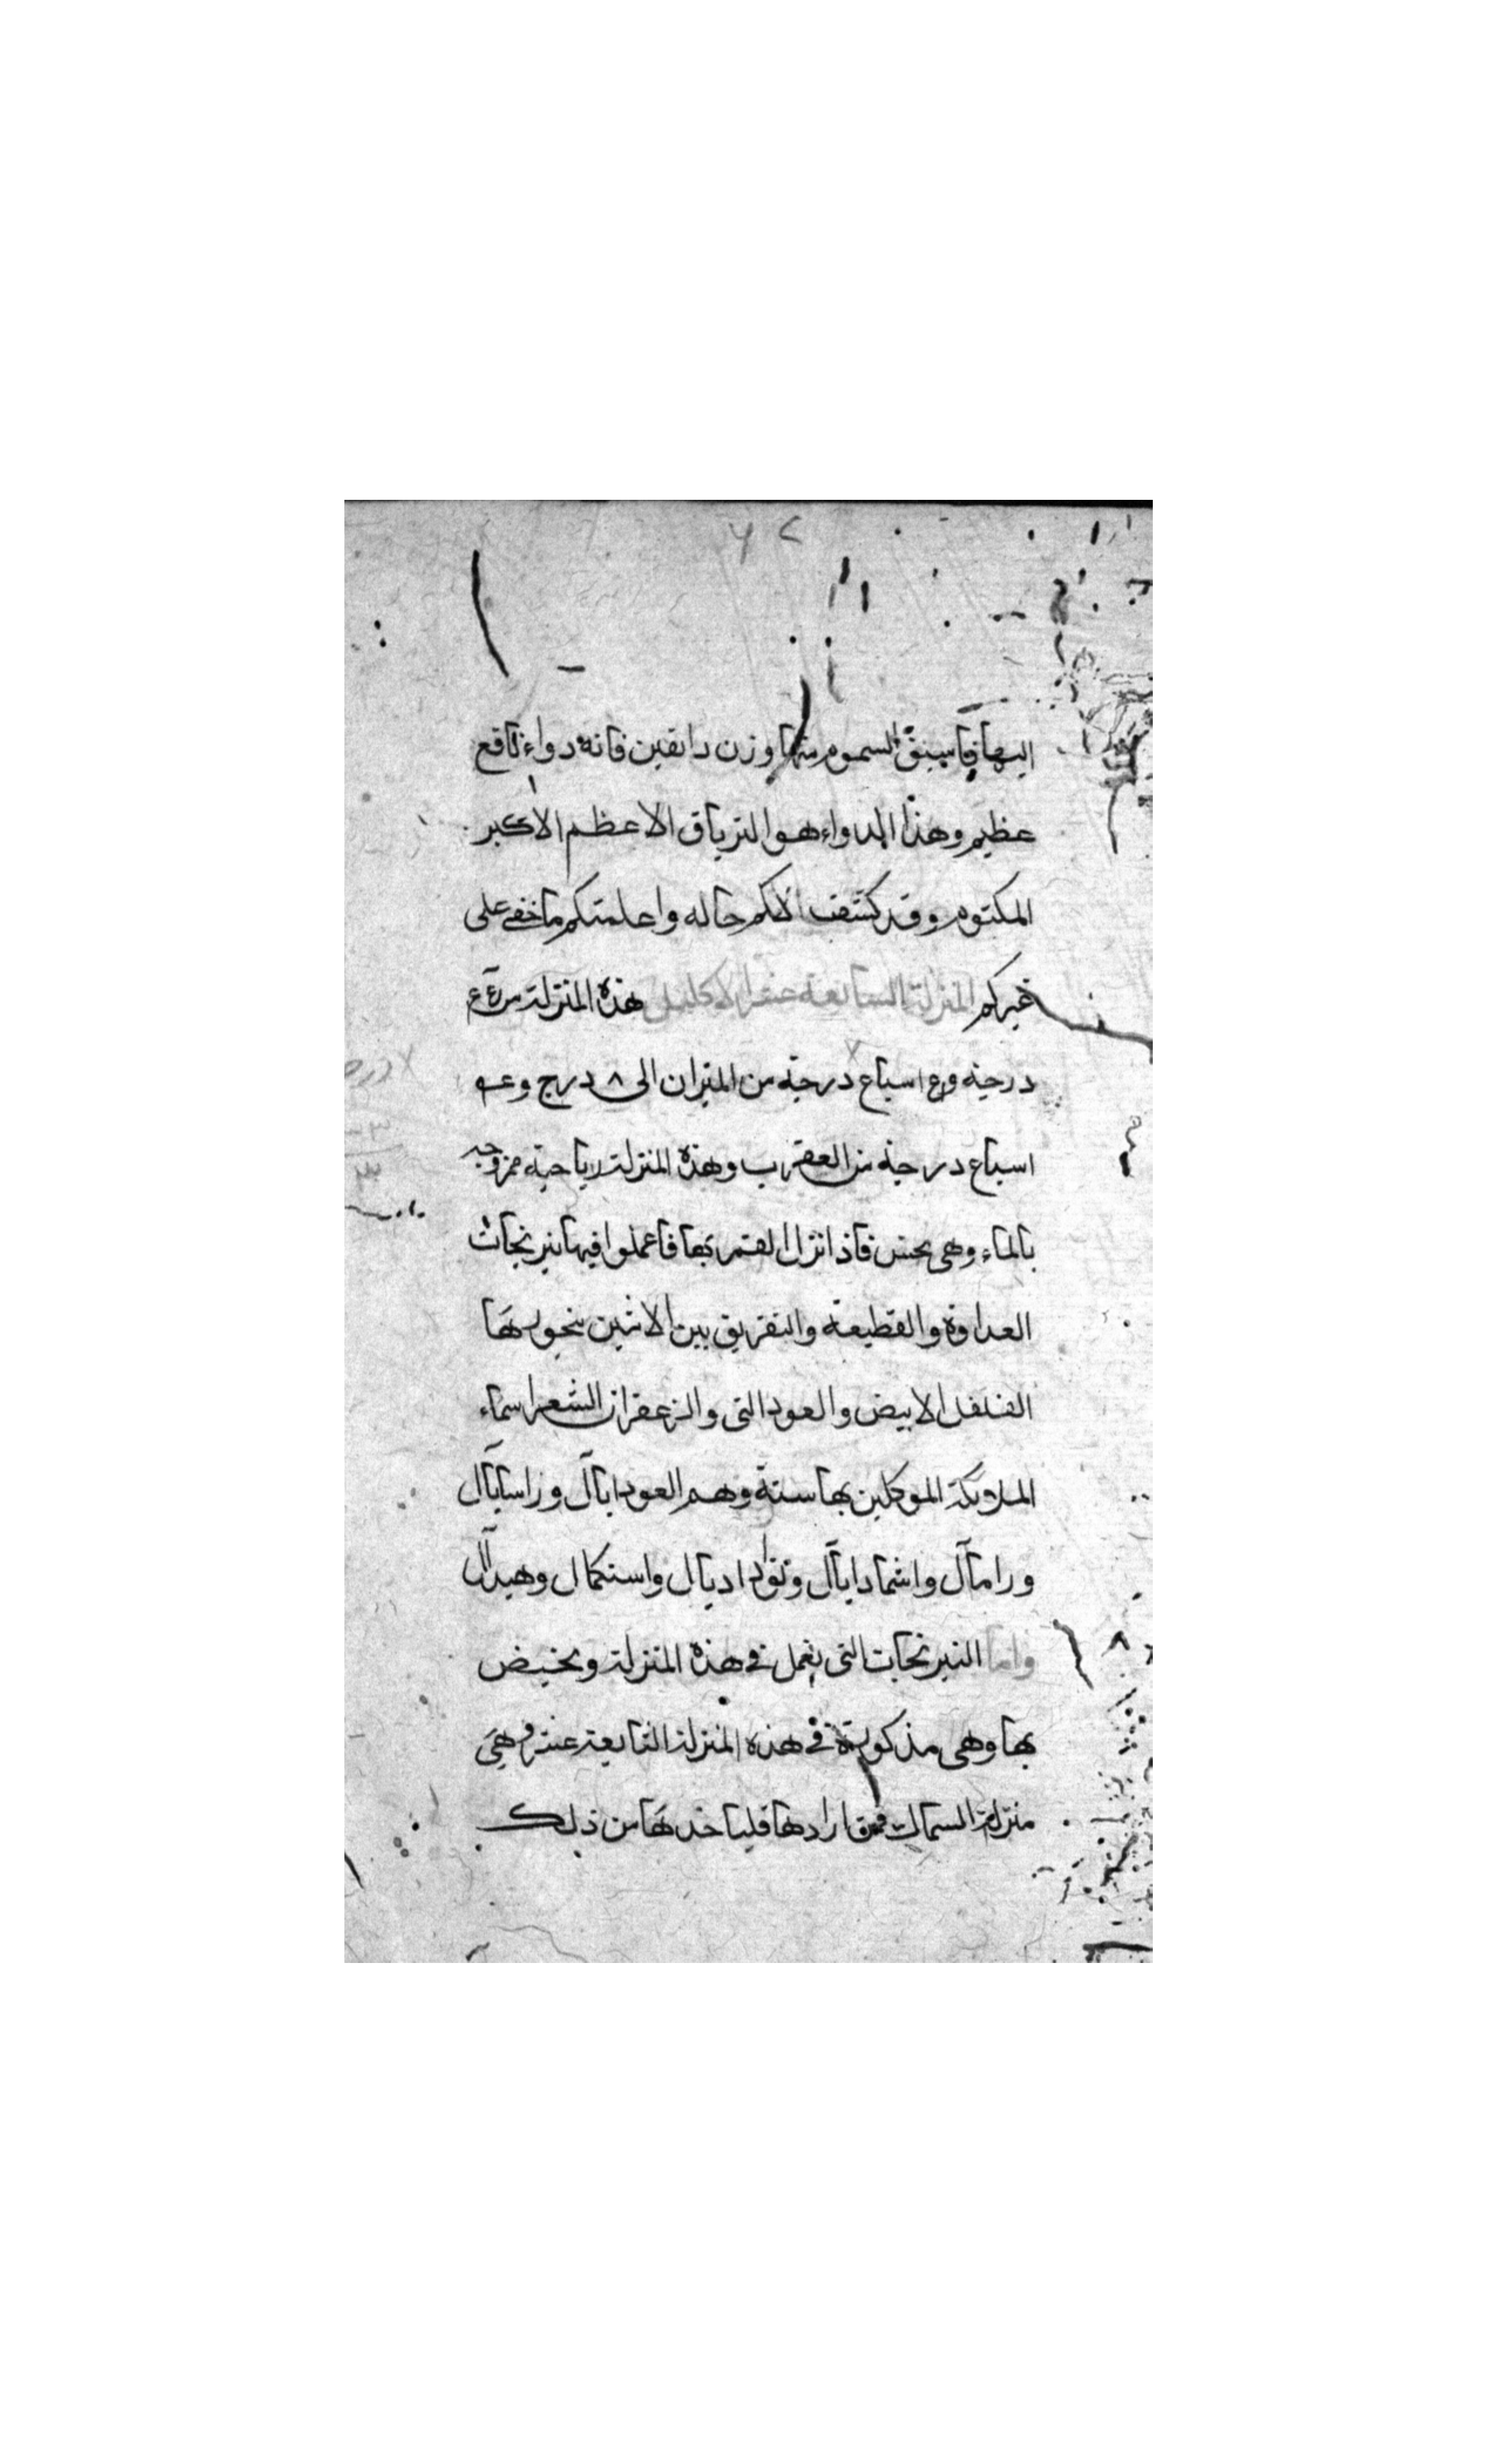 اليها فاسبق السموم منها وزن دانقين فانه دواء نافع
عظيم وهذا الدواء هو الترياق الاعظم الاكبر
المكتوم وقد كشفت لكم حاله واعلمتكم ما خفي على
غيركم المنزلة السابعة عشر الاكليل هذه المنزلة من
درجة و اسباع درجة من الميزان الى ٨ درج و
اسباع درجة من العقرب وهذه المنزلة رياحية ممزوجه
بالماء وهي نحس فاذا نزل القمر بها فاعملوا فيها نيرنجات
العداوة والقطيعة والتفريق بين الاثنين بخورها
الفلفل الابيض والعود الني والزعفران الشعر اسماء
الملائكة الموكلين بها ستة وهم وراسايآل
ورامآل واشمادايآل واستكمال
واما النيرنجات التي يعمل في هذه المنزلة ويختص
بها وهي مذكورة في هذه المنزلة عشر وهي
منزلة السماك فمن ارادها فلياخذها من ذلك